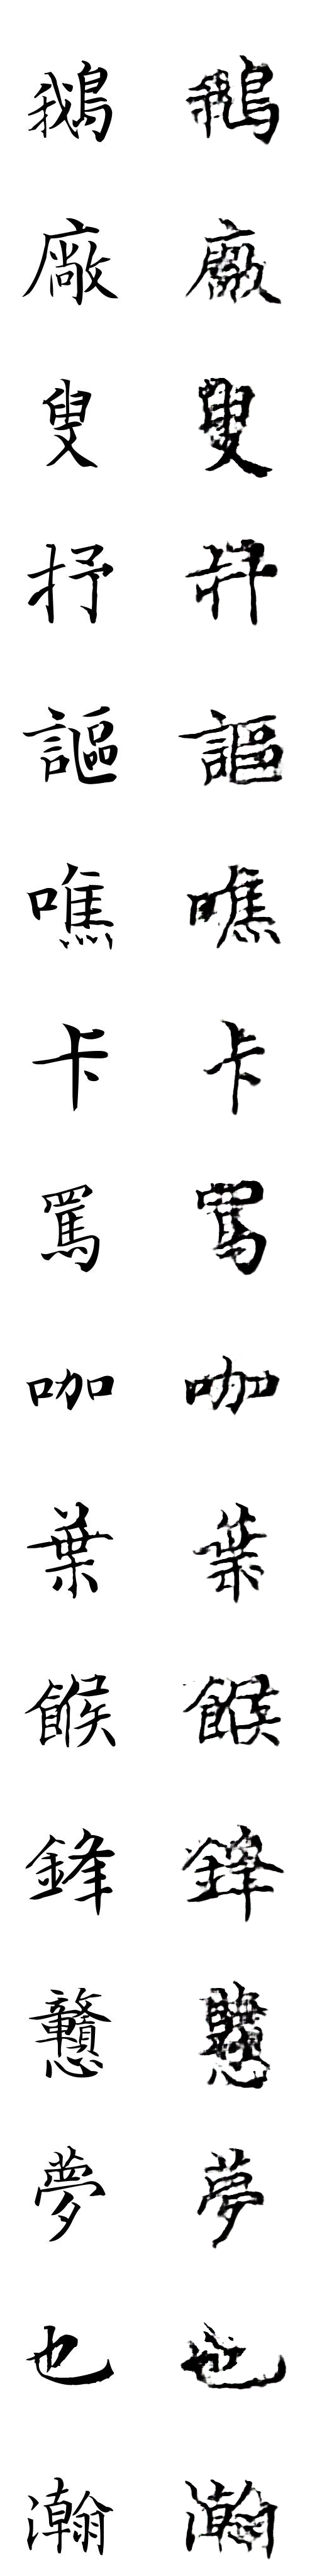 鵝 鵝
廠 廠
叟 叟
抒 抒
謳 謳
噍 噍
卡 卡
罵 罵
咖 咖
葉 葉
餱 餱
鋒 鋒
戇 戇
夢 夢
也 也
瀚 瀚